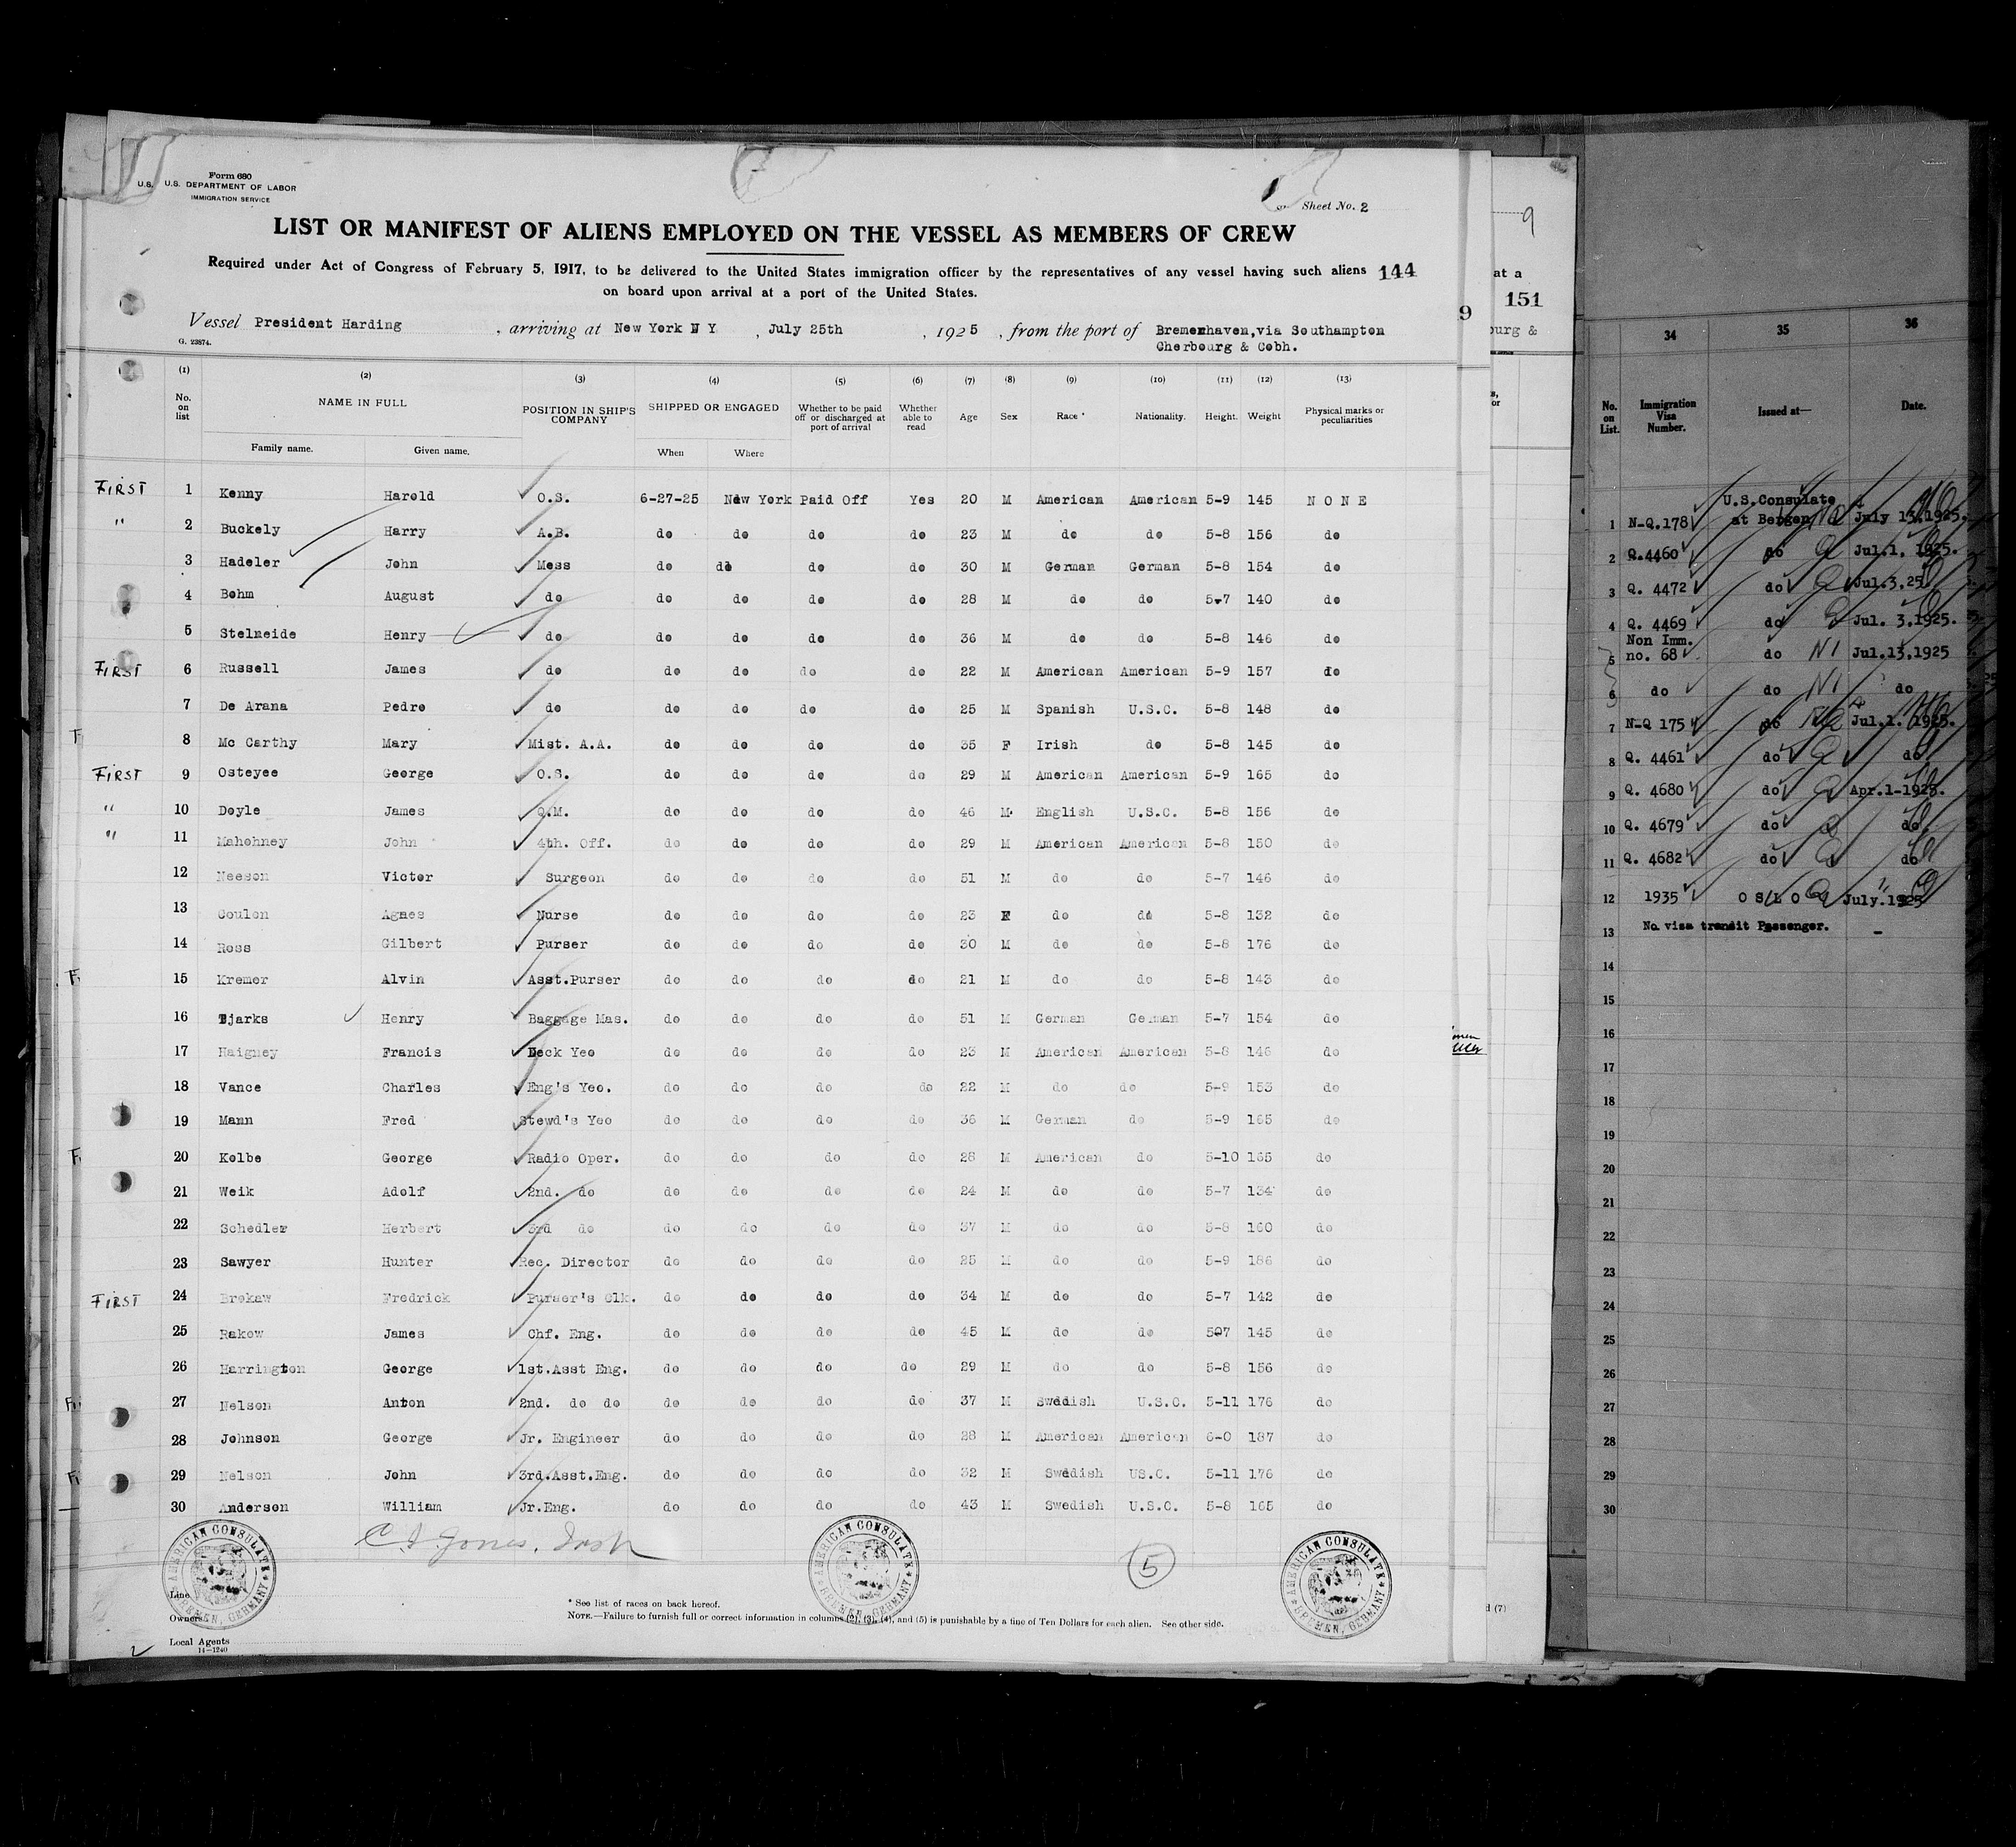 Form 680
U.S. U.S. DEPARTMENT OF LABOR
IMMIGRATION SERVICE
Sheet No. 2
LIST OR MANIFEST OF ALIENS EMPLOYED ON THE VESSEL AS MEMBERS OF CREW
Required under Act of Congress of February 5, 1917, to be delivered to the United States immigration officer by the representatives of any vessel having such aliens 144
on board upon arrival at a port of the United States.
Vessel President Harding , arriving at New York N Y , July 25th , 1925 , from the port of Bremenhaven,via Southampton
Cherbourg & Cobh.
G. 23874.
(1) (2) (3) (4) (5) (6) (7) (8) (9) (10) (11) (12) (13)
No. on list NAME IN FULL POSITION IN SHIP'S COMPANY SHIPPED OR ENGAGED Whether to be paid off or discharged at port of arrival Whether able to read Age Sex Race * Nationality. Height. Weight Physical marks or peculiarities
Family name. Given name. When Where
FIRST 1 Kenny Harold O.S. 6-27-25 New York Paid Off Yes 20 M American American 5-9 145 N O N E
" 2 Buckely Harry A.B. do do do do 23 M do do 5-8 156 do
3 Hadeler John Mess do do do do 30 M German German 5-8 154 do
4 Bohm August do do do do do 28 M do do 5-7 140 do
5 Stelneide Henry do do do do do 36 M do do 5-8 146 do
FIRST 6 Russell James do do do do do 22 M American American 5-9 157 do
7 De Arana Pedro do do do do do 25 M Spanish U.S.C. 5-8 148 do
8 Mc Carthy Mary Mist. A.A. do do do do 35 F Irish do 5-8 145 do
FIRST 9 Osteyee George O.S. do do do do 29 M American American 5-9 165 do
" 10 Doyle James Q.M. do do do do 46 M English U.S.C. 5-8 156 do
" 11 Mahohney John 4th. Off. do do do do 29 M American American 5-8 150 do
12 Neeson Victor Surgeon do do do do 51 M do do 5-7 146 do
13 Coulon Agnes Nurse do do do do 23 F do do 5-8 132 do
14 Ross Gilbert Purser do do do do 30 M do do 5-8 176 do
15 Kremer Alvin Asst.Purser do do do do 21 M do do 5-8 143 do
16 Tjarks Henry Baggage Mas. do do do do 51 M German German 5-7 154 do
17 Haigney Francis Deck Yeo do do do do 23 M American American 5-8 146 do
18 Vance Charles Eng's Yeo. do do do do 22 M do do 5-9 153 do
19 Mann Fred Stewd's Yeo do do do do 36 M German do 5-9 165 do
20 Kolbe George Radio Oper. do do do do 28 M American do 5-10 165 do
21 Weik Adolf 2nd. do do do do do 24 M do do 5-7 134 do
22 Schedler Herbert 3rd do do do do do 37 M do do 5-8 160 do
23 Sawyer Hunter Rec. Director do do do do 25 M do do 5-9 186 do
FIRST 24 Brokaw Fredrick Purser's Clk. do do do do 34 M do do 5-7 142 do
25 Rakow James Chf. Eng. do do do do 45 M do do 507 145 do
26 Harrington George 1st.Asst Eng. do do do do 29 M do do 5-8 156 do
27 Nelson Anton 2nd. do do do do do do 37 M Swedish U.S.C. 5-11 176 do
28 Johnson George Jr. Engineer do do do do 28 M American American 6-0 187 do
29 Nelson John 3rd.Asst.Eng. do do do do 32 M Swedish US.C. 5-11 176 do
30 Anderson William Jr.Eng. do do do do 43 M Swedish U.S.C. 5-8 165 do
C. Jones.
5
AMERICAN CONSULATE BREMEN, GERMANY
AMERICAN CONSULATE BREMEN, GERMANY
AMERICAN CONSULATE BREMEN, GERMANY
Line
Owners
Local Agents
14-1240
* See list of races on back hereof.
NOTE.—Failure to furnish full or correct information in columns (2), (3), (4), and (5) is punishable by a fine of Ten Dollars for each alien. See other side.
9
9
at a
151
ourg &
34 35 36
No. on List. Immigration Visa Number. Issued at— Date.
1 N-Q.178 U.S.Consulate at Bergen July 13,1925.
2 Q.4460 do Q Jul.1, 1925.
3 Q. 4472 do Q Jul.3.25
4 Q. 4469 do Q Jul. 3,1925.
5 Non Imm. no. 68 do NI Jul.13,1925
6 do do NI do
7 N-Q 175 do NQ Jul.1. 1925.
8 Q. 4461 do Q do
9 Q. 4680 do Q Apr.1-1925.
10 Q. 4679 do Q do
11 Q. 4682 do Q do
12 1935 O S L O Q July. 1925
13 No visa transit Passenger. -
14
15
16
17
18
19
20
21
22
23
24
25
26
27
28
29
30